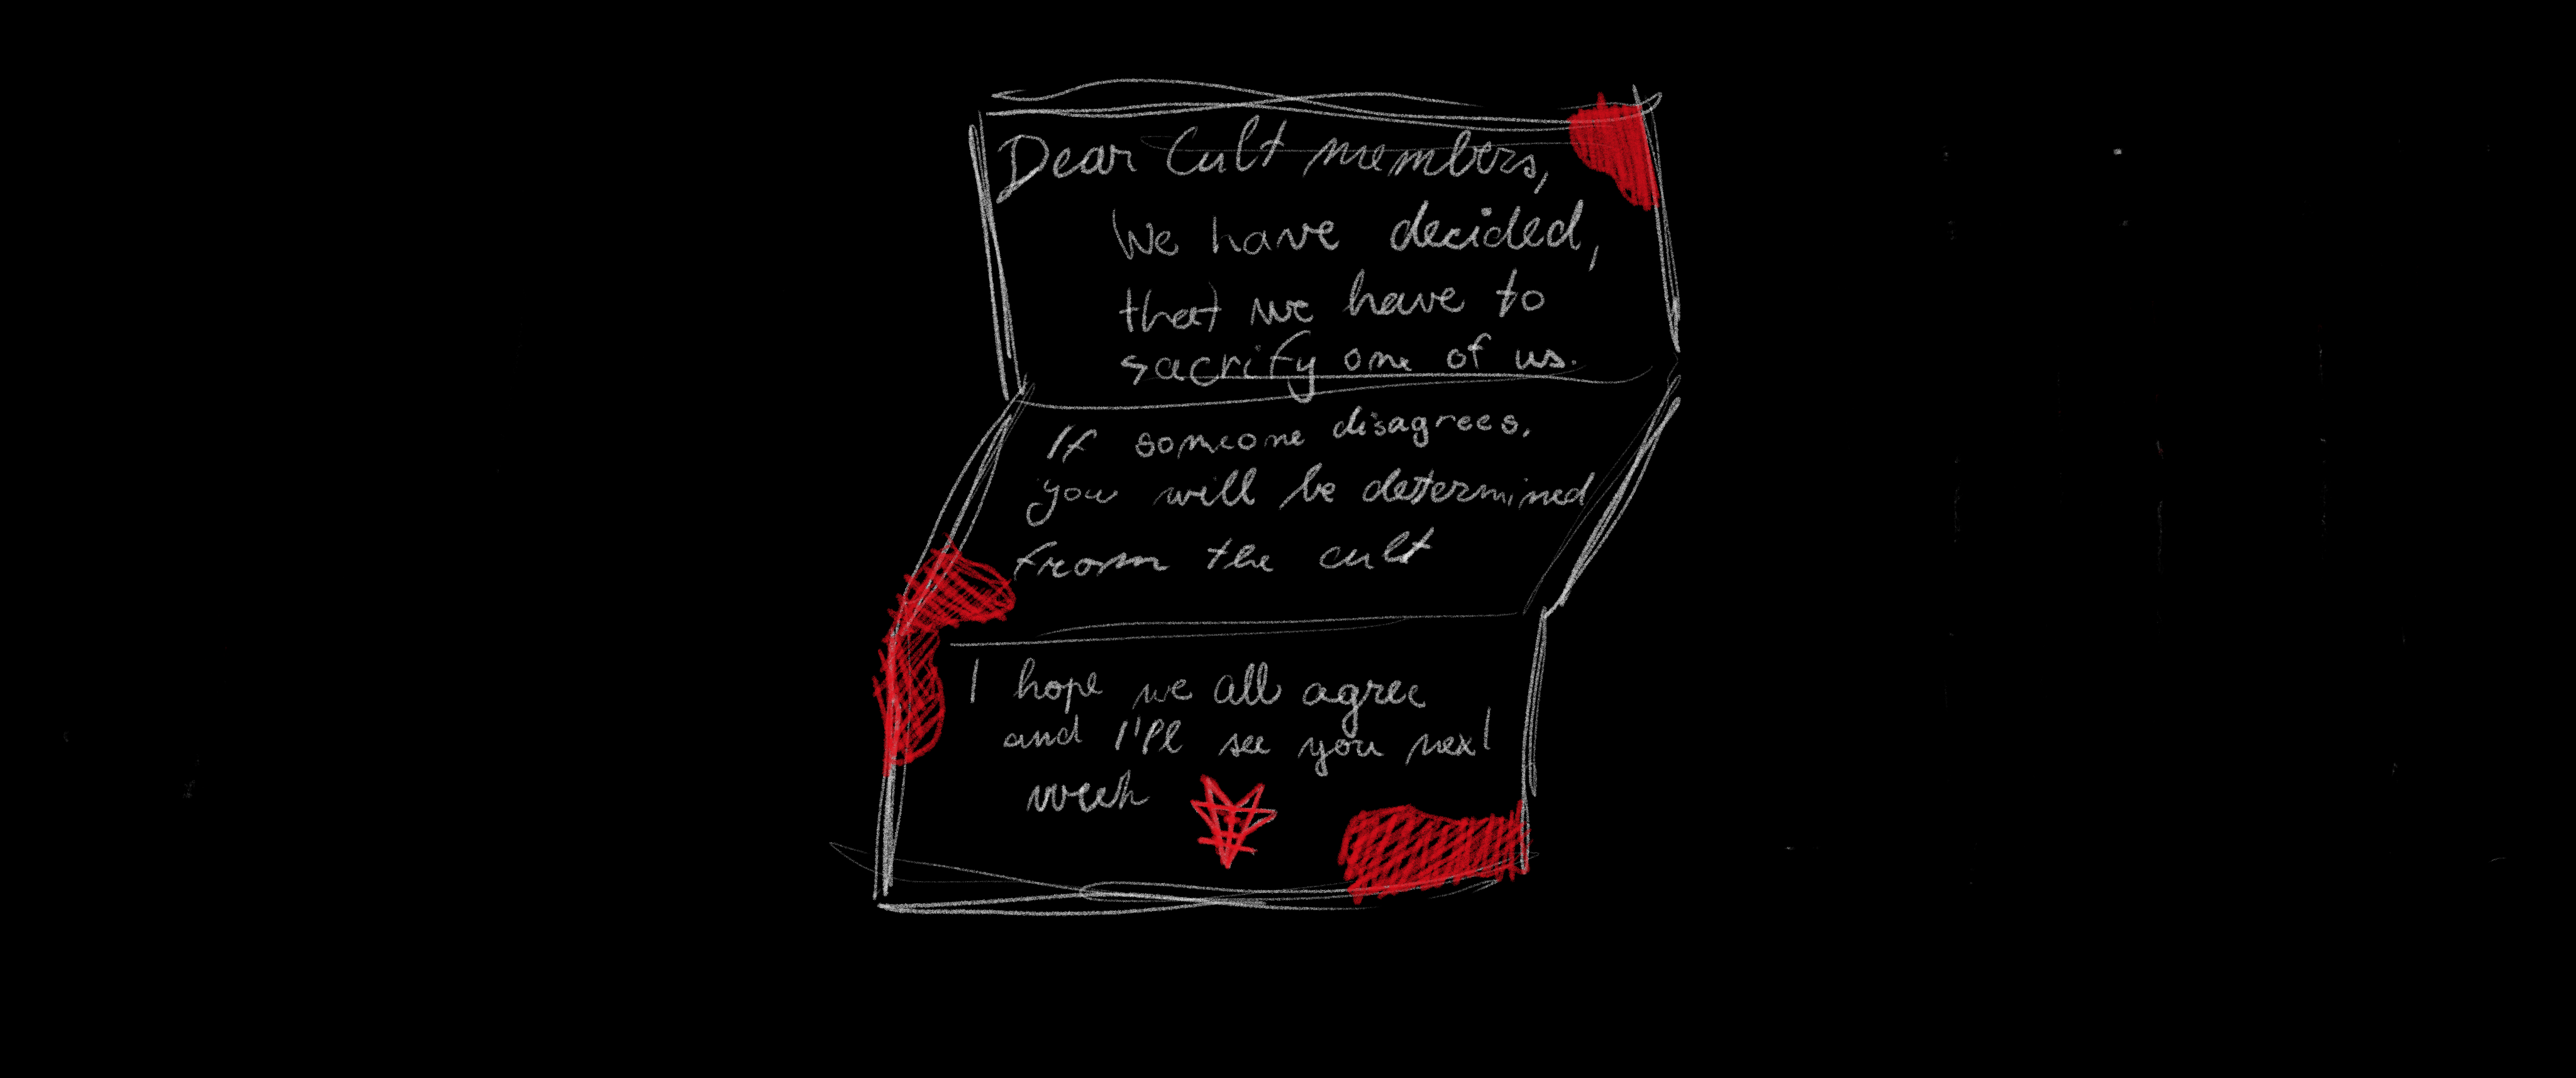 Dear Cult members,
We have decided,
that we have to
sacrify one of us.
If someone disagrees,
you will be determined
from the cult
I hope we all agree
and I'll see you next
week